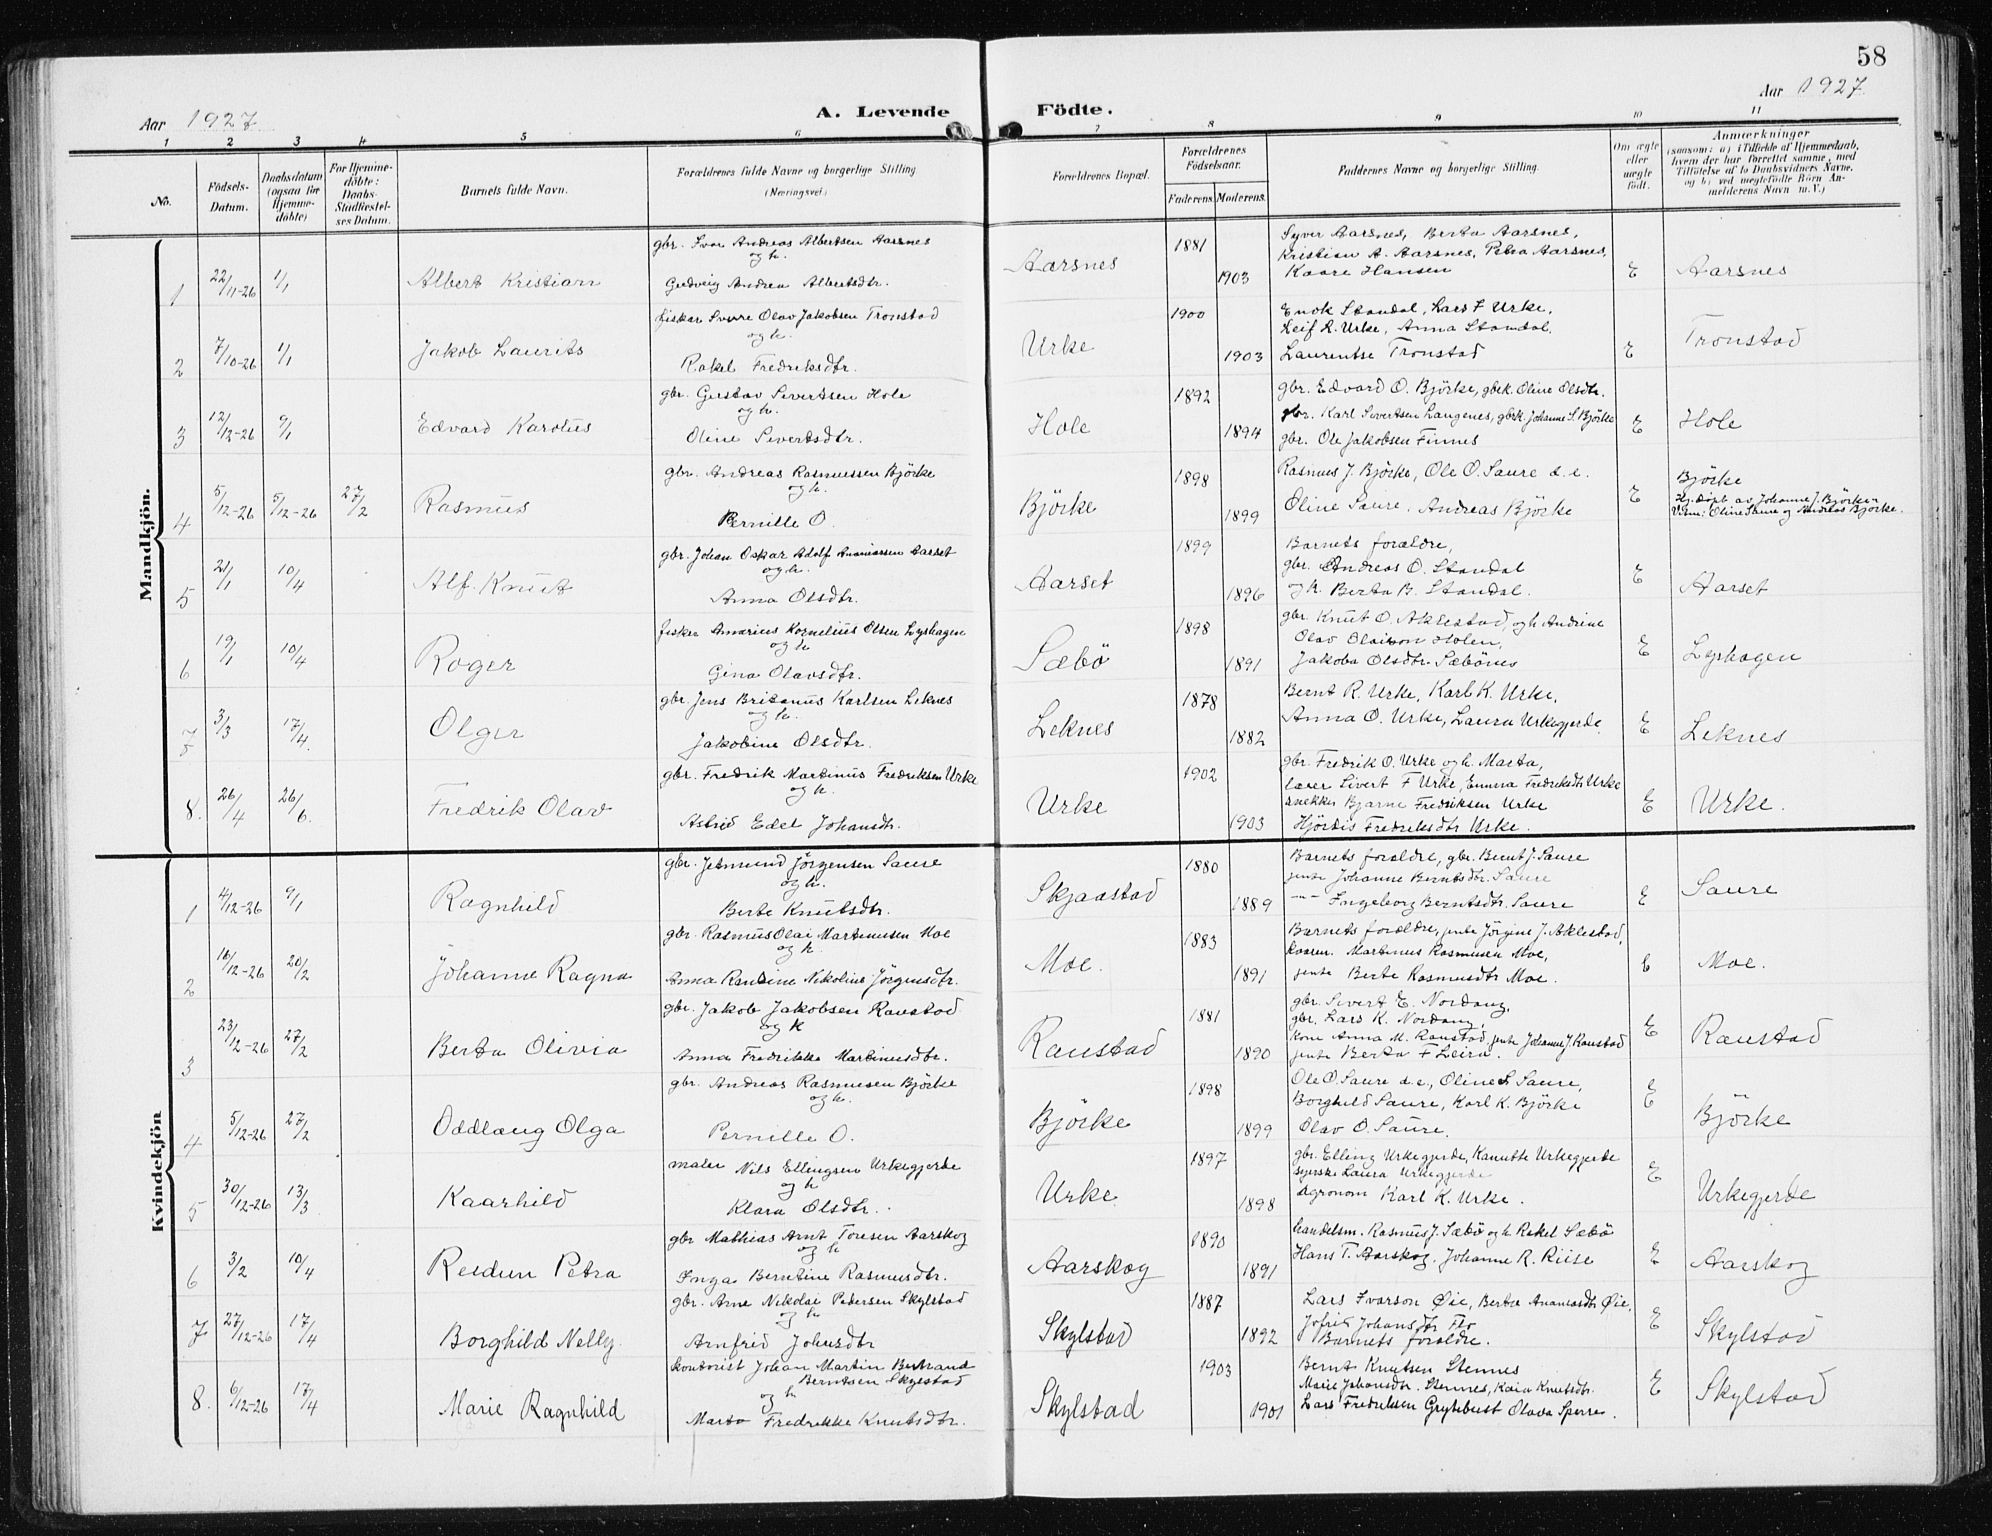 58
Aar 1927 A. Levende Fødte. Aar 1927
1 2 3 4 5 6 7 8 9 10 11
No.
Födsels-
Datum.
Daabsdatum
(ogsaa for
Hjemme-
döbte)
For Hjemme-
döbte:
Daabs-
Stadfæstel-
ses Datum.
Barnets fulde Navn.
Forældrenes fulde Navne og borgerlige Stilling
(Næringsvei)
Forældrenes Bopæl.
Forældrenes
Födselsaar.
Faderens. Moderens.
Faddernes Navne og borgerlige Stilling.
Om ægte
eller
uægte
födt.
Anmærkninger
(saasom: a) i Tilfælde af Hjemmedaab,
hvem der har forrettet samme, med
Tilföielse af to Daabsvidners Navne,
og b) ved uægtefödte Börn An-
melderens Navn m. V.)
Mandkjön.
1 22/11-26 1/1 Albert Kristian
gbr. Ivar Andreas Albertsen Aarsnes
og h.
Gudveig Andrea Albertsdtr.
Aarsnes 1881 1903
Syver Aarsnes, Berta Aarsnes,
Kristian A. Aarsnes, Petra Aarsnes,
Kaare Hansen
E Aarsnes
2 7/10-26 1/1 Jakob Laurits
fisker Sverre Olav Jakobsen Tronstad
og h.
Rakel Fredriksdtr.
Urke 1900 1903
Enok Standal, Lars F Urke,
Leif R. Urke, Anna Standal,
Laurentse Tronstad
E Tronstad
3 12/12-26 9/1 Edvard Karolus
gbr. Gustav Sivertsen Hole
og h.
Oline Sivertsdtr.
Hole 1892 1894
gbr. Edvard O. Björke, gbrk. Oline Olsdtr.
gbr. Karl Sivertsen Langenes, gbrk. Johanne S. Björke
gbr. Ole Jakobsen Finnes
E Hole
4 5/12-26 5/12-26 27/2 Rasmus
gbr. Andreas Rasmussen Björke
og h.
Pernille O.
Björke 1898 1899
Rasmus J. Björke, Ole O. Saure d.e.
Oline Saure, Andreas Björke
E Björke
Hj.döpt av Johanne J. Björke.
Vitne: Oline Saure og Andreas Björke.
5 21/1 10/4 Alf Knut
gbr. Johan Oskar Adolf Ananiassen Aarset
og h.
Anna Olsdtr.
Aarset 1899 1896
Barnets forældre,
gbr. Andreas O. Standal
og h. Berta B. Standal.
E Aarset
6 19/1 10/4 Roger
fisker Amarius Kornelius Olsen Lyshagen
og h.
Gina Olavsdtr.
Sæbö 1898 1891
gbr. Knut O. Aklestad, og h Andrine
Olav Olaison Holen,
Jakoba Olsdtr. Sæbönes
E Lyshagen
7 3/3 17/4. Olger
gbr. Jens Britanus Karlsen Leknes
og h.
Jakobine Olsdtr.
Leknes 1878 1882
Bernt R. Urke, Karl K. Urke,
Anna O. Urke, Laura Urkegjerde
E Leknes
8. 26/4 26/6. Fredrik Olav
gbr. Fredrik Martinus Fredriksen Urke
og h.
Astrid Edel Johansdtr.
Urke 1902 1903
gbr. Fredrik O. Urke og h. Marta,
lærer Sivert F Urke, Emma Fredriksdtr Urke
snekker Bjarne Fredriksen Urke
Hjördis Fredriksdtr Urke.
E Urke.
Kvindekjön
1 4/12-26 9/1 Ragnhild
gbr. Jetmund Jörgensen Saure
og h.
Berte Knutsdtr.
Skjaastad 1880 1889
Barnets forældre, gbr. Bernt J. Saure
jente Johanne Berntsdtr. Saure
-"- Ingeborg Berntsdtr. Saure
E Saure
2 16/12-26 20/2 Johanne Ragna
gbr. Rasmus Olai Martinussen Moe
og h.
Anna Randine Nikoline Jörgensdtr.
Moe. 1883 1891
Barnets forældre, jente Jörgine J. Aklestad,
Martinus Rasmussen Moe,
jente Berte Rasmusdtr Moe.
E Moe.
3 23/12-26 27/2 Berta Olivia
gbr. Jakob Jakobsen Ranstad
og h
Anna Fredrikke Martinusdtr.
Ranstad 1881 1890
gbr. Sivert E. Nordang,
gbr. Lars K. Nordang,
kone Anna M. Ranstad, jente Johanne J. Ranstad
jente Berta F Leira.
E Ranstad
4 5/12-26 27/2 Oddlaug Olga
gbr. Andreas Rasmusen Björke
og h.
Pernille O.
Björke 1898 1899
Ole O. Saure d.e., Oline S Saure,
Borghild Saure, Karl K. Björke
Olav O. Saure.
E Björke
5 30/12-26 13/3 Kaarhild
maler Nils Ellingsen Urkegjerde
og h
Klara Olsdtr.
Urke 1897 1898
gbr. Elling Urkegjerde, Kanutte Urkegjerde
syerske Laura Urkegjerde
agronom Karl K. Urke.
E Urkegjerde
6 3/2 10/4 Reidun Petra
gbr Mathias Arnt Toresen Aarskog
og h
Inga Berntine Rasmusdtr.
Aarskog 1890 1891
handelsm. Rasmus J. Sæbö og h. Rakel Sæbö
Hans T. Aarskog, Johanne R. Riise
E Aarskog
7 27/12-26 17/4 Borghild Nelly
gbr. Arne Nikolai Pedersen Skylstad
og h
Arnfrid Johnsdtr
Skylstad 1887 1892
Lars Ivarson Øie, Berta Ananiasdtr Øie,
Jofrid Johansdtr Flo
Barnets forældre.
E Skylstad
8. 6/12-26 17/4 Marie Ragnhild
kontorist Johan Martin Bertrand
Berntsen Skylstad
og h
Marta Fredrikke Knutsdtr.
Skylstad 1903 1901
Bernt Knutsen Stennes
Marie Johansdtr. Stennes, Kaia Knutsdtr.
Lars Fredriksen Grytebust Olava Sperre.
E Skylstad